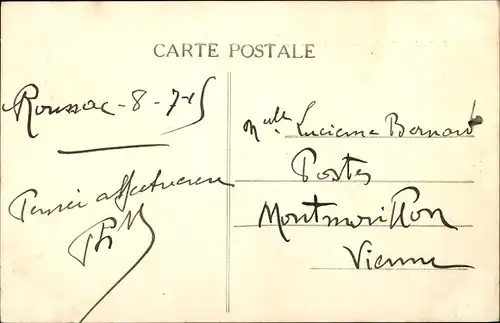 CARTE POSTALE
Roussac - 8 - 7 - 15
Pensée affectueuse
Mlle Lucienne Bernard
Postes
Montmorillon
Vienne